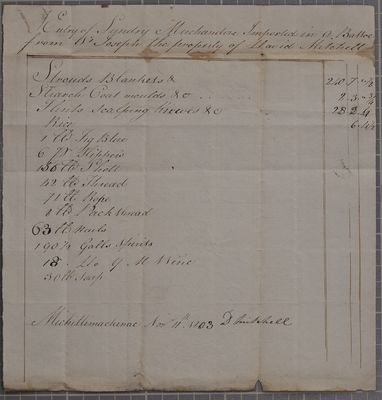 Entry of Sundry Merchandise Imported in a Batteau
from St Joseph the property of David Mitchell
Strouds Blankets &
Starch Coat moulds &c
Flints Scalping knives &c 23.2.4
Rice
1 lb Fig Blue
6 pr Slippers
lb Shott
42 lb Thread
71 lb Rope
8 lb Pack thread
63 lb Nails
190½ Galls Spirits
18 Do of M Wine
30 lb Soap
Michilimackinac Novr 4th 1803 D Mitchell